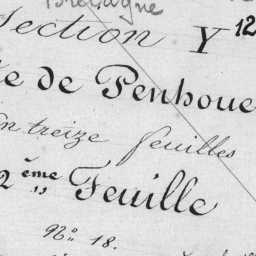 Bretagne
Section Y 12
de Penhoue
En treize feuilles
2 ème Feuille
N° 18.